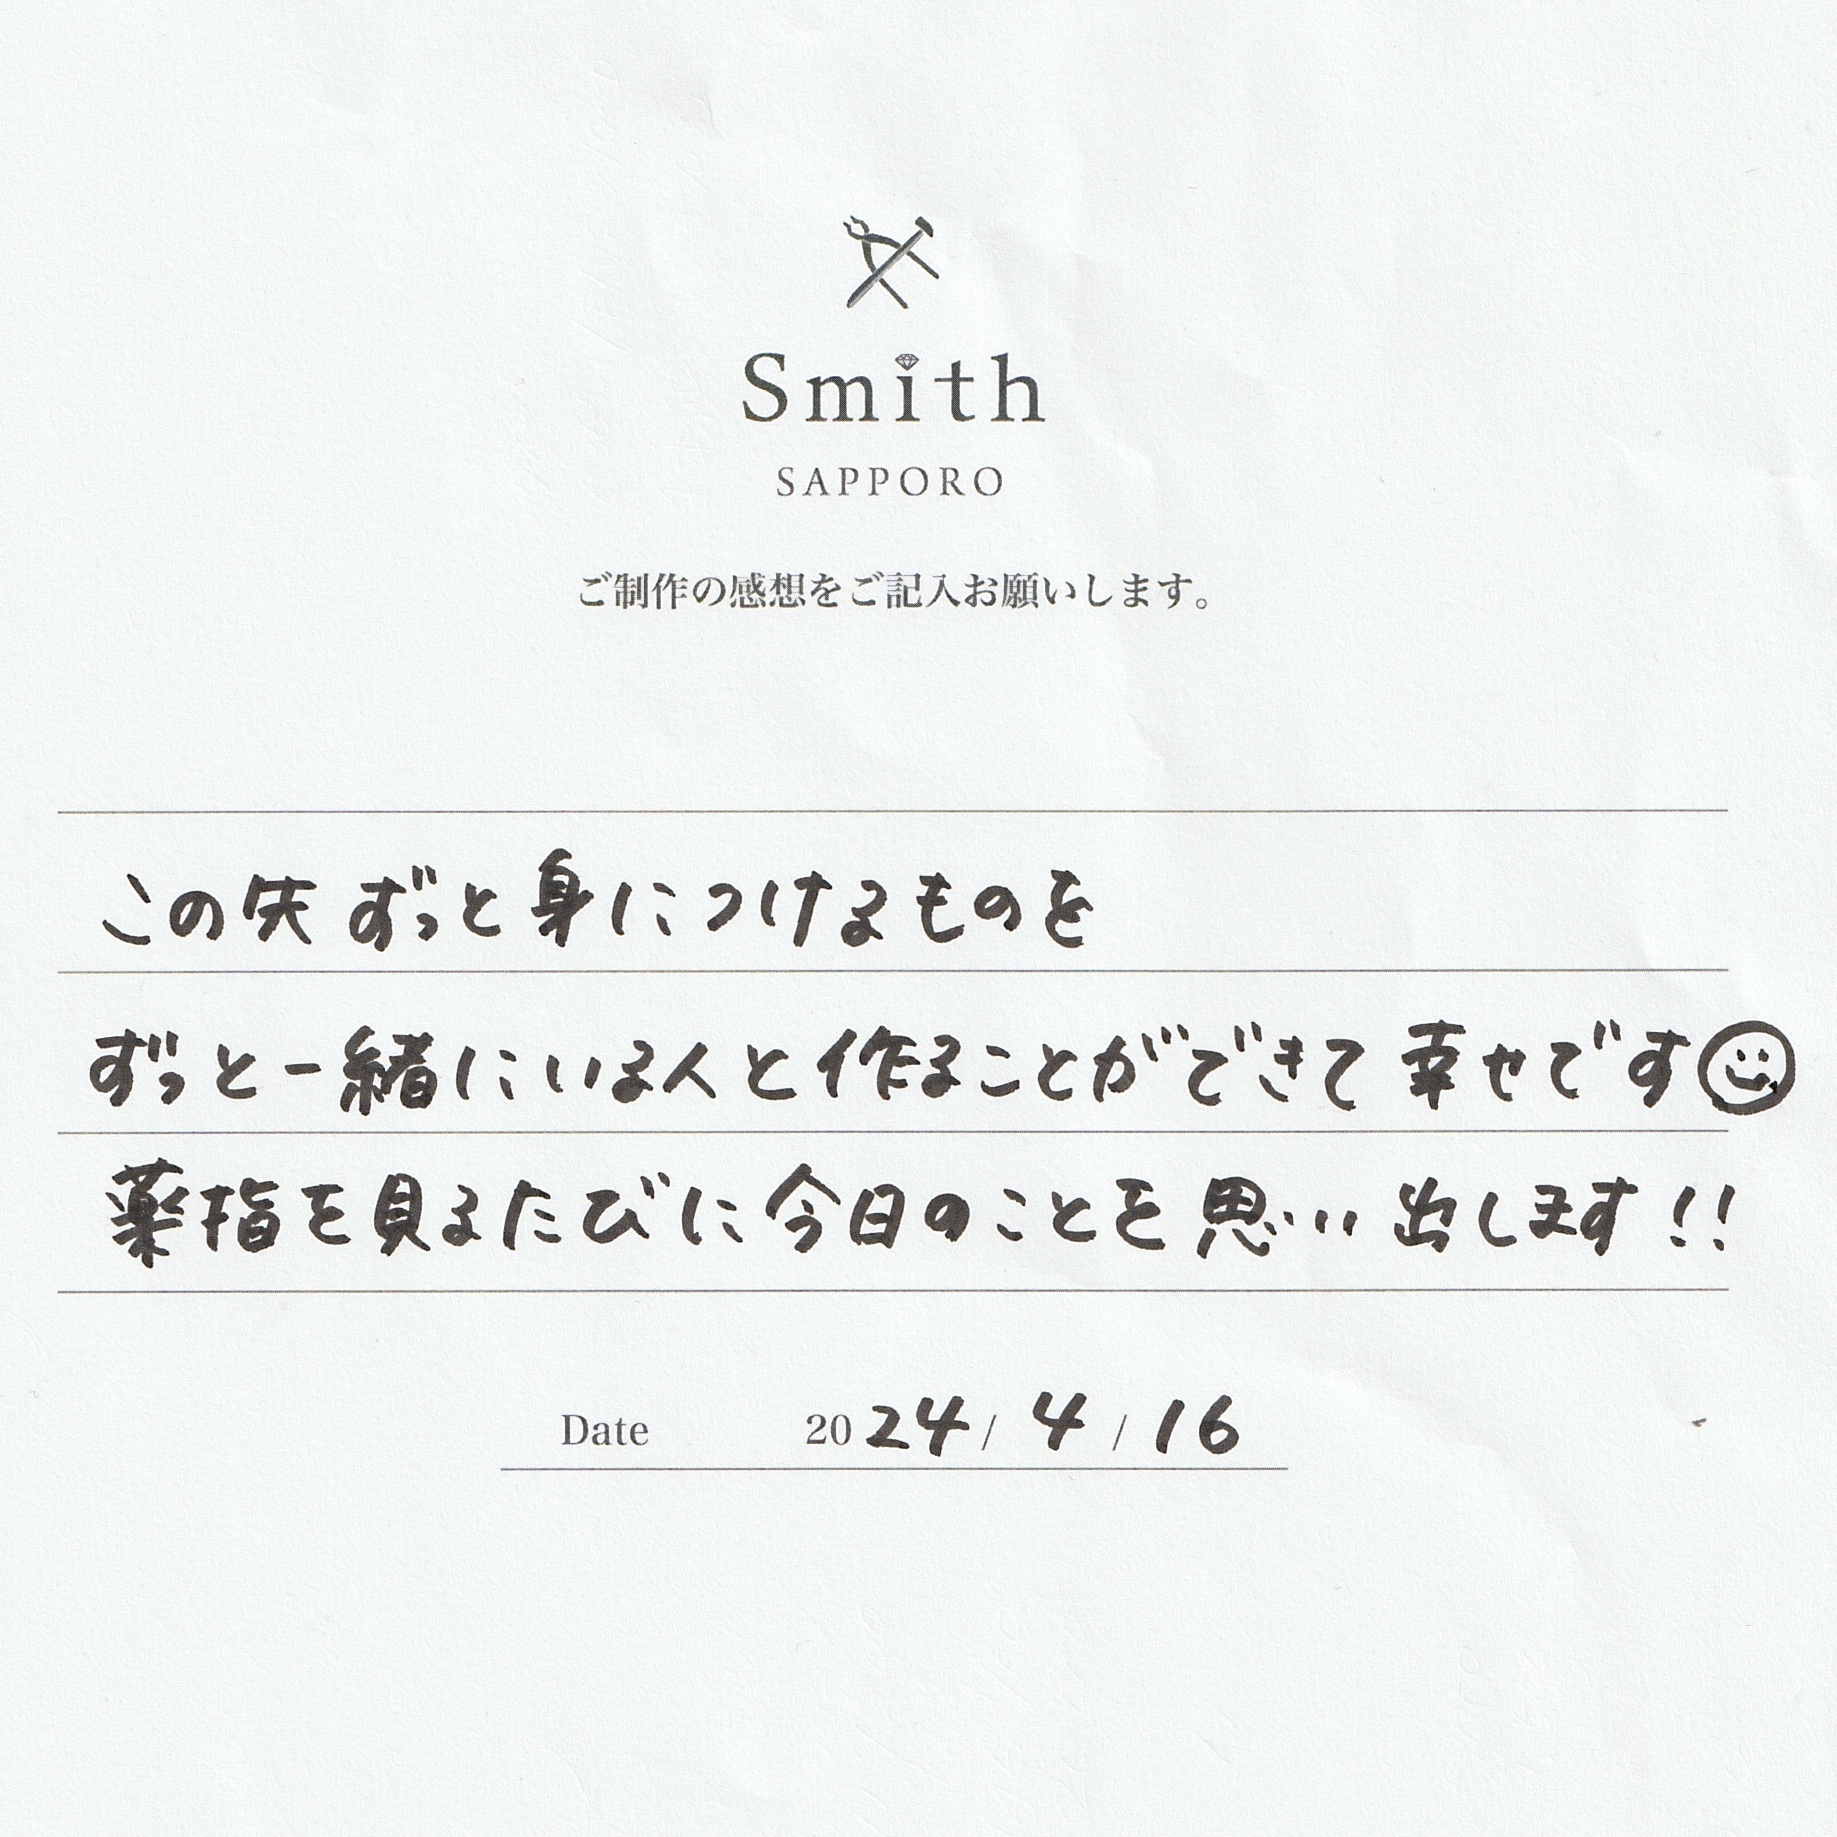 Smith
SAPPORO
ご制作の感想をご記入お願いします。
この先ずっと身につけるものを
ずっと一緒にいる人と作ることができて幸せです
薬指を見るたびに今日のことを思い出します!!
Date 2024/4/16